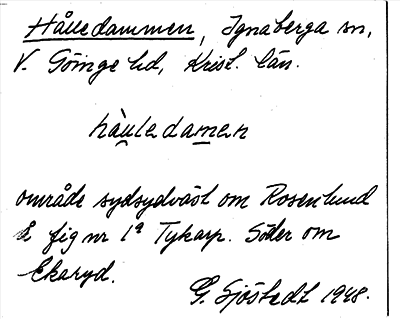 Hålledammen, Ignaberga sn,
V. Göinge hd, Krist. län.
hàu̯ledamen
område sydsydväst om Rosenlund
å fig nr 1ª Tykarp. Söder om
Ekaryd.
G. Sjöstedt 1948.